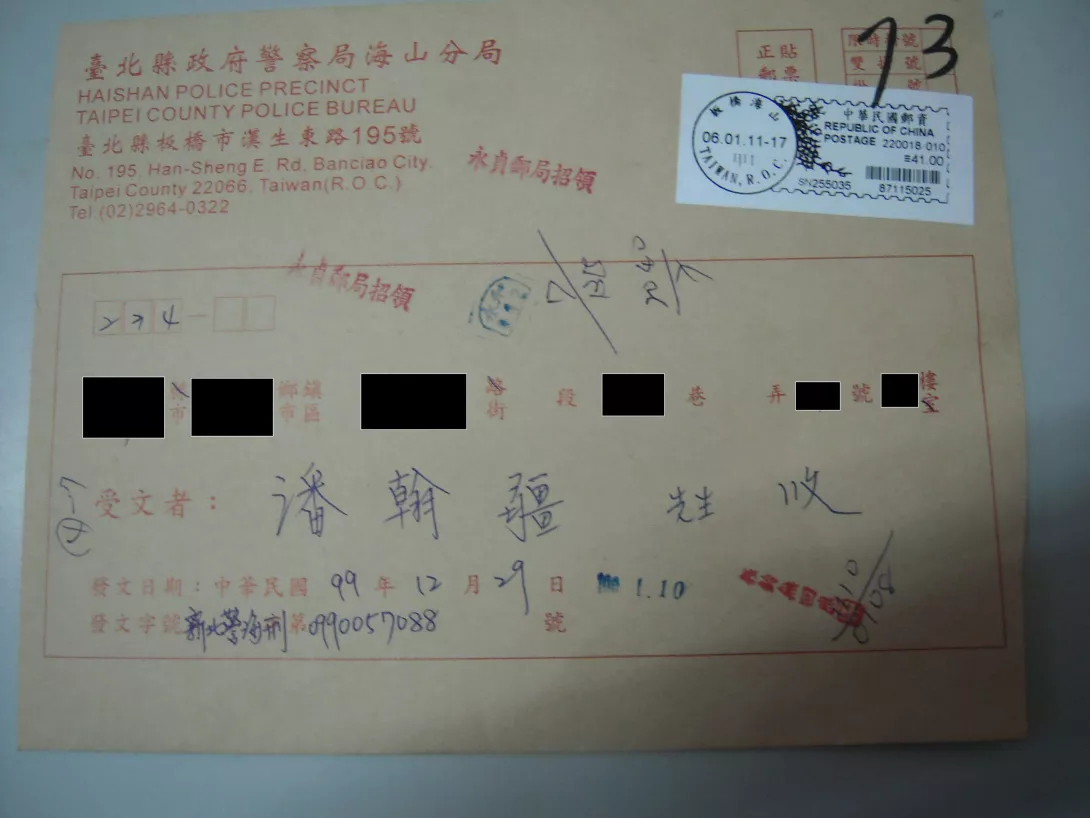 臺北縣政府警察局海山分局
HAISHAN POLICE PRECINCT
TAIPEI COUNTY POLICE BUREAU
臺北縣板橋市漢生東路195號
No. 195, Han-Sheng E. Rd, Banciao City,
Taipei County 22066, Taiwan(R.O.C.)
Tel (02)2964-0322
正貼
郵票
限時 號
雙掛號
號
73
板橋海山
06.01.11-17
甲
TAIWAN, R.O.C.
中華民國郵資
REPUBLIC OF CHINA
POSTAGE 220018-010
41.00
SN255035
87115025
永貞郵局招領
永貞郵局招領
234
縣市 鄉鎮市區 路街 段 巷 弄 號 樓室
受文者： 潘翰疆 先生 收
發文日期：中華民國 99 年 12 月 29 日
1.10
發文字號 新北警海刑 第 0990057088 號